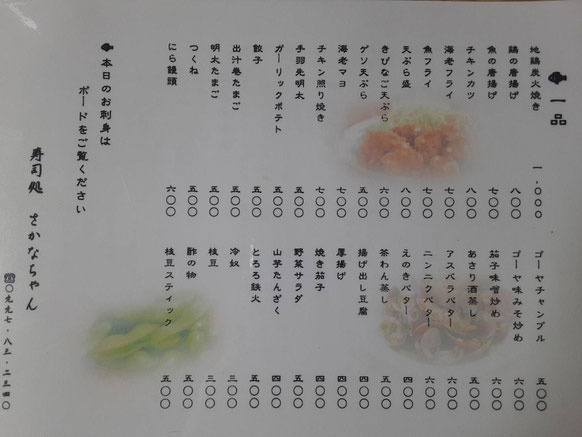 一品
地鶏炭火焼き 一,〇〇〇
鶏の唐揚げ 八〇〇
魚の唐揚げ 七〇〇
チキンカツ 八〇〇
海老フライ 七〇〇
魚フライ 七〇〇
天ぷら盛 八〇〇
きびなご天ぷら 六〇〇
ゲソ天ぷら 五〇〇
海老マヨ 七〇〇
チキン照り焼き 七〇〇
手羽先明太 五〇〇
ガーリックポテト 五〇〇
餃子 五〇〇
出汁巻たまご 五〇〇
明太たまご 五〇〇
つくね 五〇〇
にら饅頭 六〇〇
ゴーヤチャンプル 五〇〇
ゴーヤ味みそ炒め 六〇〇
茄子味噌炒め 六〇〇
あさり酒蒸し 五〇〇
アスパラバター 六〇〇
ニンニクバター 六〇〇
えのきバター 四〇〇
茶わん蒸し 五〇〇
揚げ出し豆腐 四〇〇
厚揚げ 四〇〇
焼き茄子 四〇〇
野菜サラダ 五〇〇
山芋たんざく 四〇〇
とろろ鉄火 五〇〇
冷奴 三〇〇
枝豆 三〇〇
酢の物 五〇〇
枝豆スティック 五〇〇
本日のお刺身は
ボードをご覧ください
寿司処 さかなちゃん
☎〇九九七-八二-二三四〇